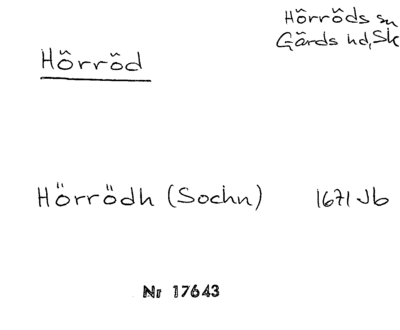 Hörröds sn
Gärds hd, Sk
Hörröd
Hörrödh (Sochn) 1671 Jb
Nr 17643